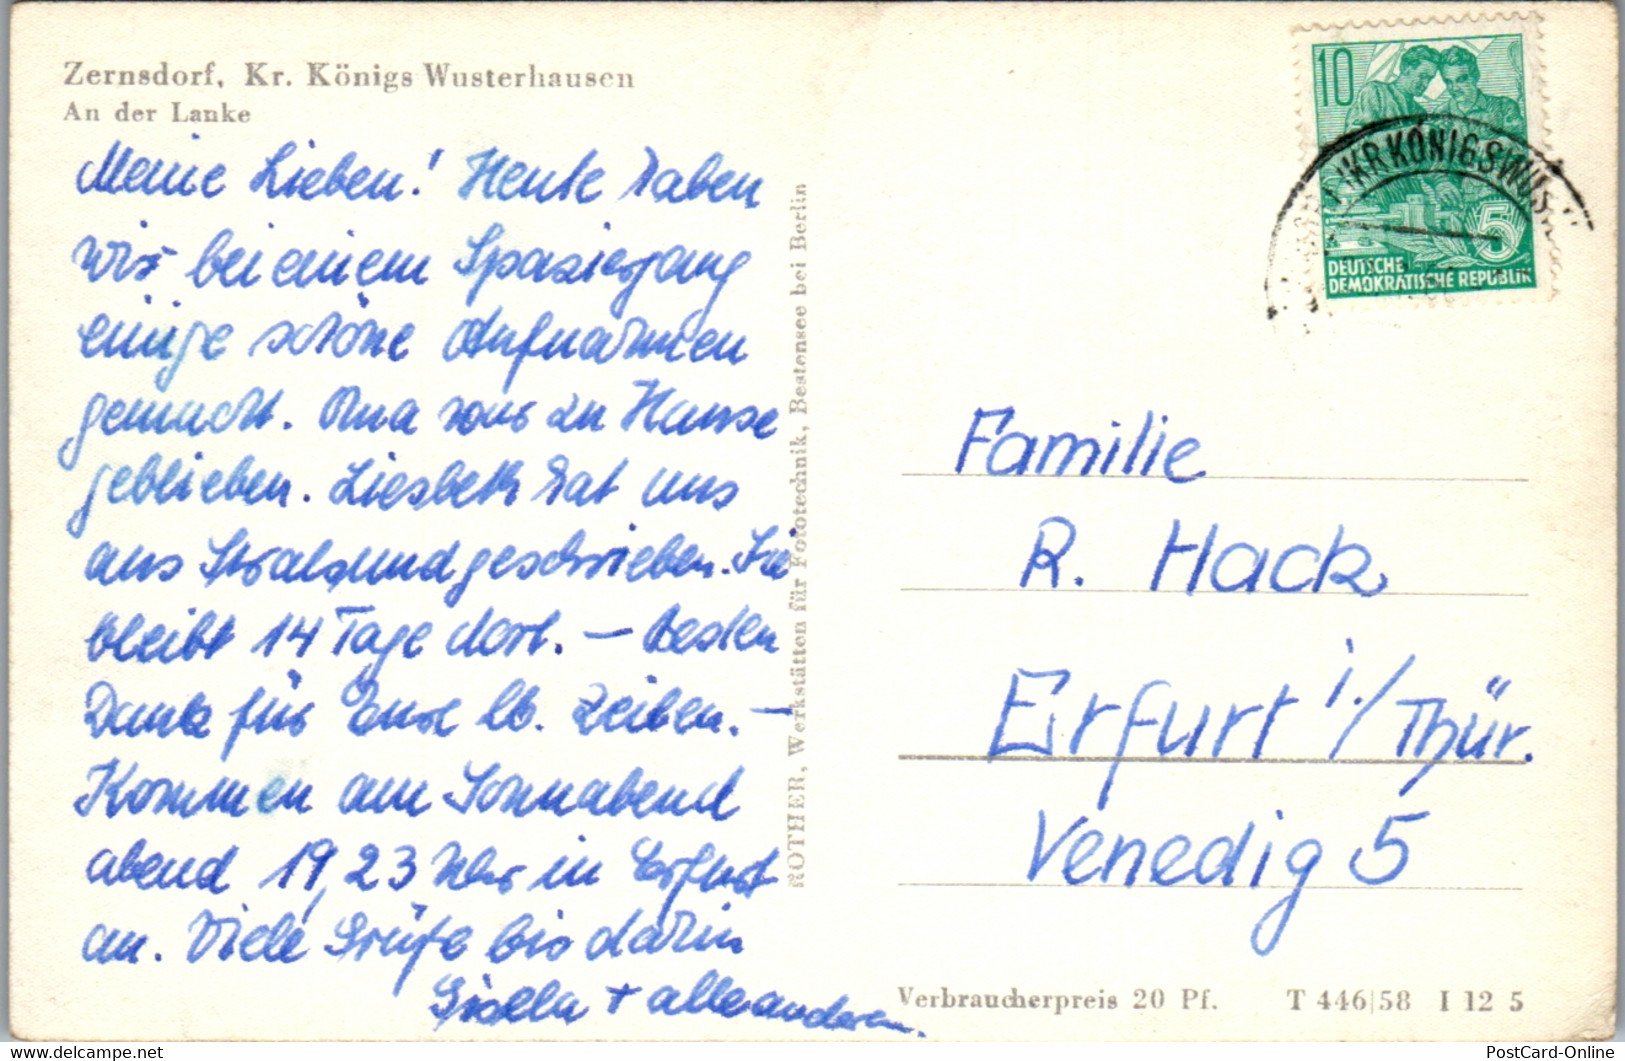 Zernsdorf, Kr. Königs Wusterhausen
An der Lanke
Meine Lieben! Heute haben
wir bei einem Spaziergang
einige schöne Aufnahmen
gemacht. Oma war zu Hause
geblieben. Liesbeth hat uns
aus Stralsund geschrieben. Sie
bleibt 14 Tage dort. — Besten
Dank für Eure lb. Zeilen. —
Kommen am Sonnabend
abend 19,23 Uhr in Erfurt
an. Viele Grüße bis dahin
Gisela + alle anderen.
ROTHER, Werkstätten für Fototechnik, Bestensee bei Berlin
10
KR KÖNIGSWUS
5
DEUTSCHE
DEMOKRATISCHE REPUBLIK
Familie
R. Hack
Erfurt i./Thür.
Venedig 5
Verbraucherpreis 20 Pf. T 446|58 I 12 5
delcampe.net
PostCard-Online